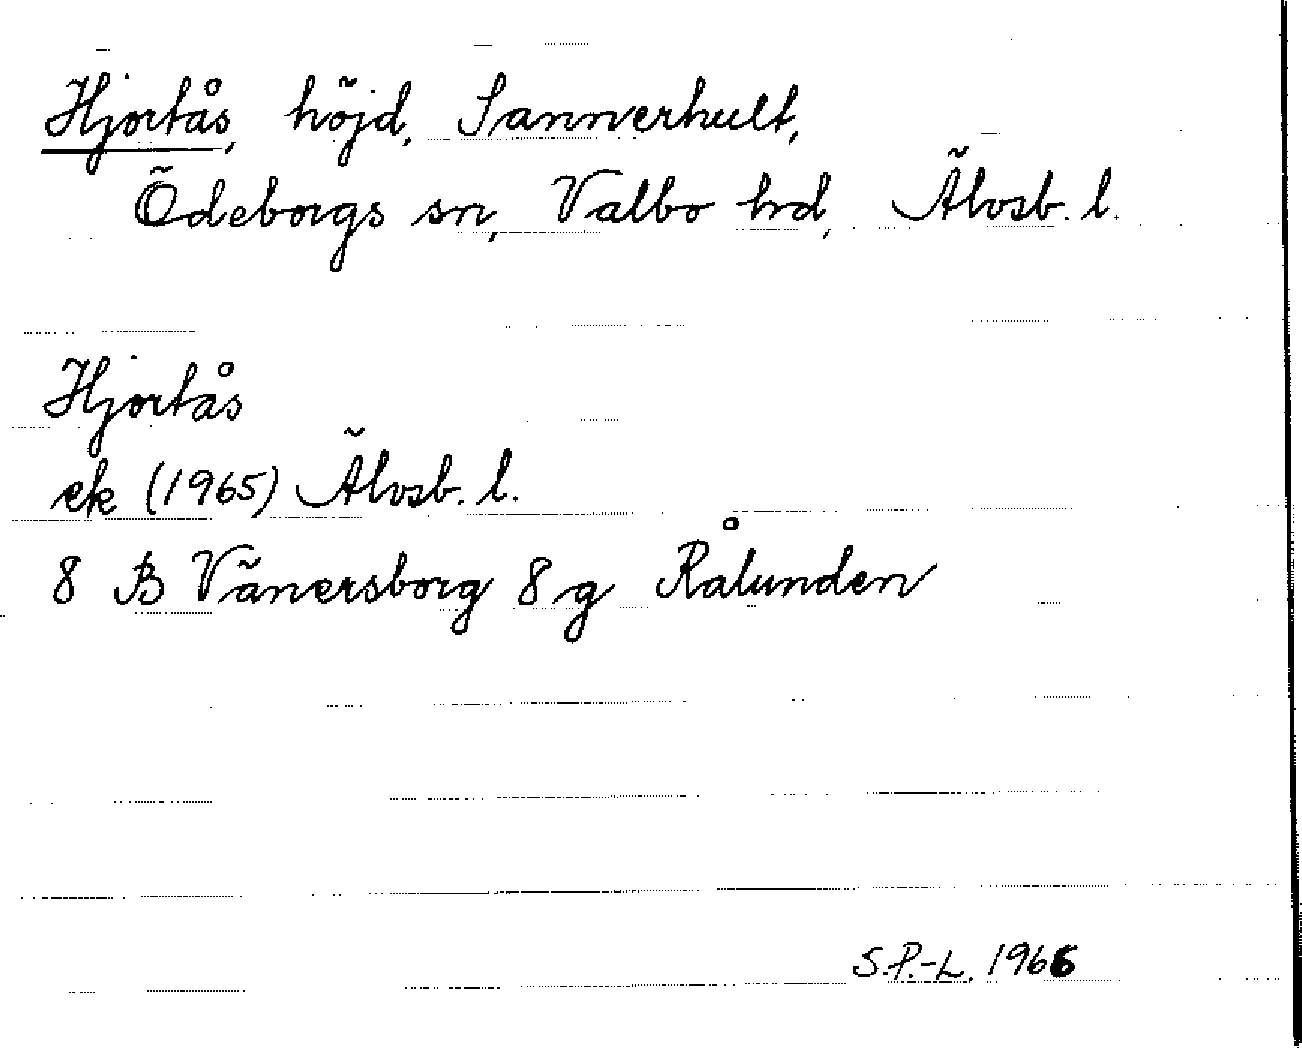 Hjortås, höjd, Sannerhult,
Ödeborgs sn, Valbo hrd, Älvsb. l.
Hjortås
ek (1965) Älvsb. l.
8 B Vänersborg 8 g Rålunden
S.P.-L. 1966